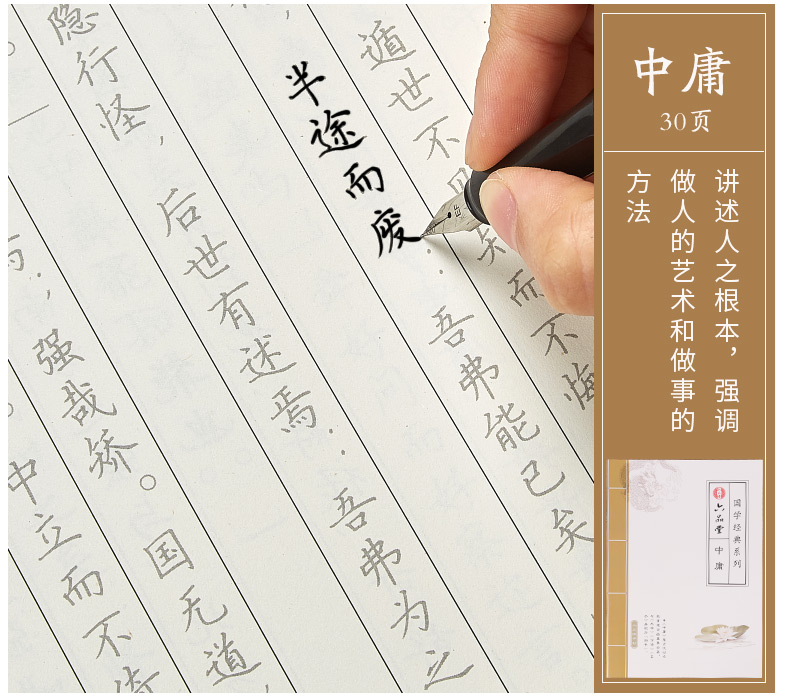 遁世不
而不悔
半途而废：吾弗能已矣
隐行怪，后世有述焉：吾弗为之
强哉矫。国无道，
中立而不倚
中庸
30页
讲述人之根本，强调
做人的艺术和做事的
方法
国学经典系列
六品堂 中庸